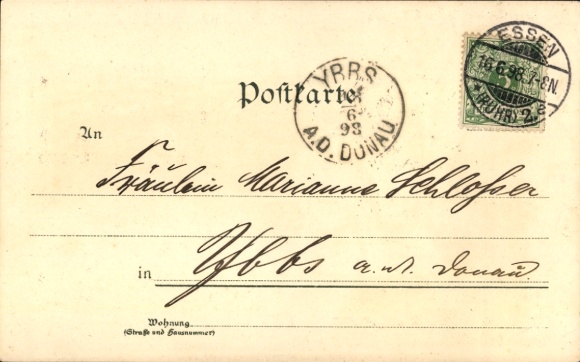 ESSEN
16.6.98.7-8N.
*(RUHR) 2.e
YBBS
6
98
A.D. DONAU
Postkarte
An
Fräulein Marianne Schlosser
in Ybbs a. d. Donau.
Wohnung
(Straße und Hausnummer)